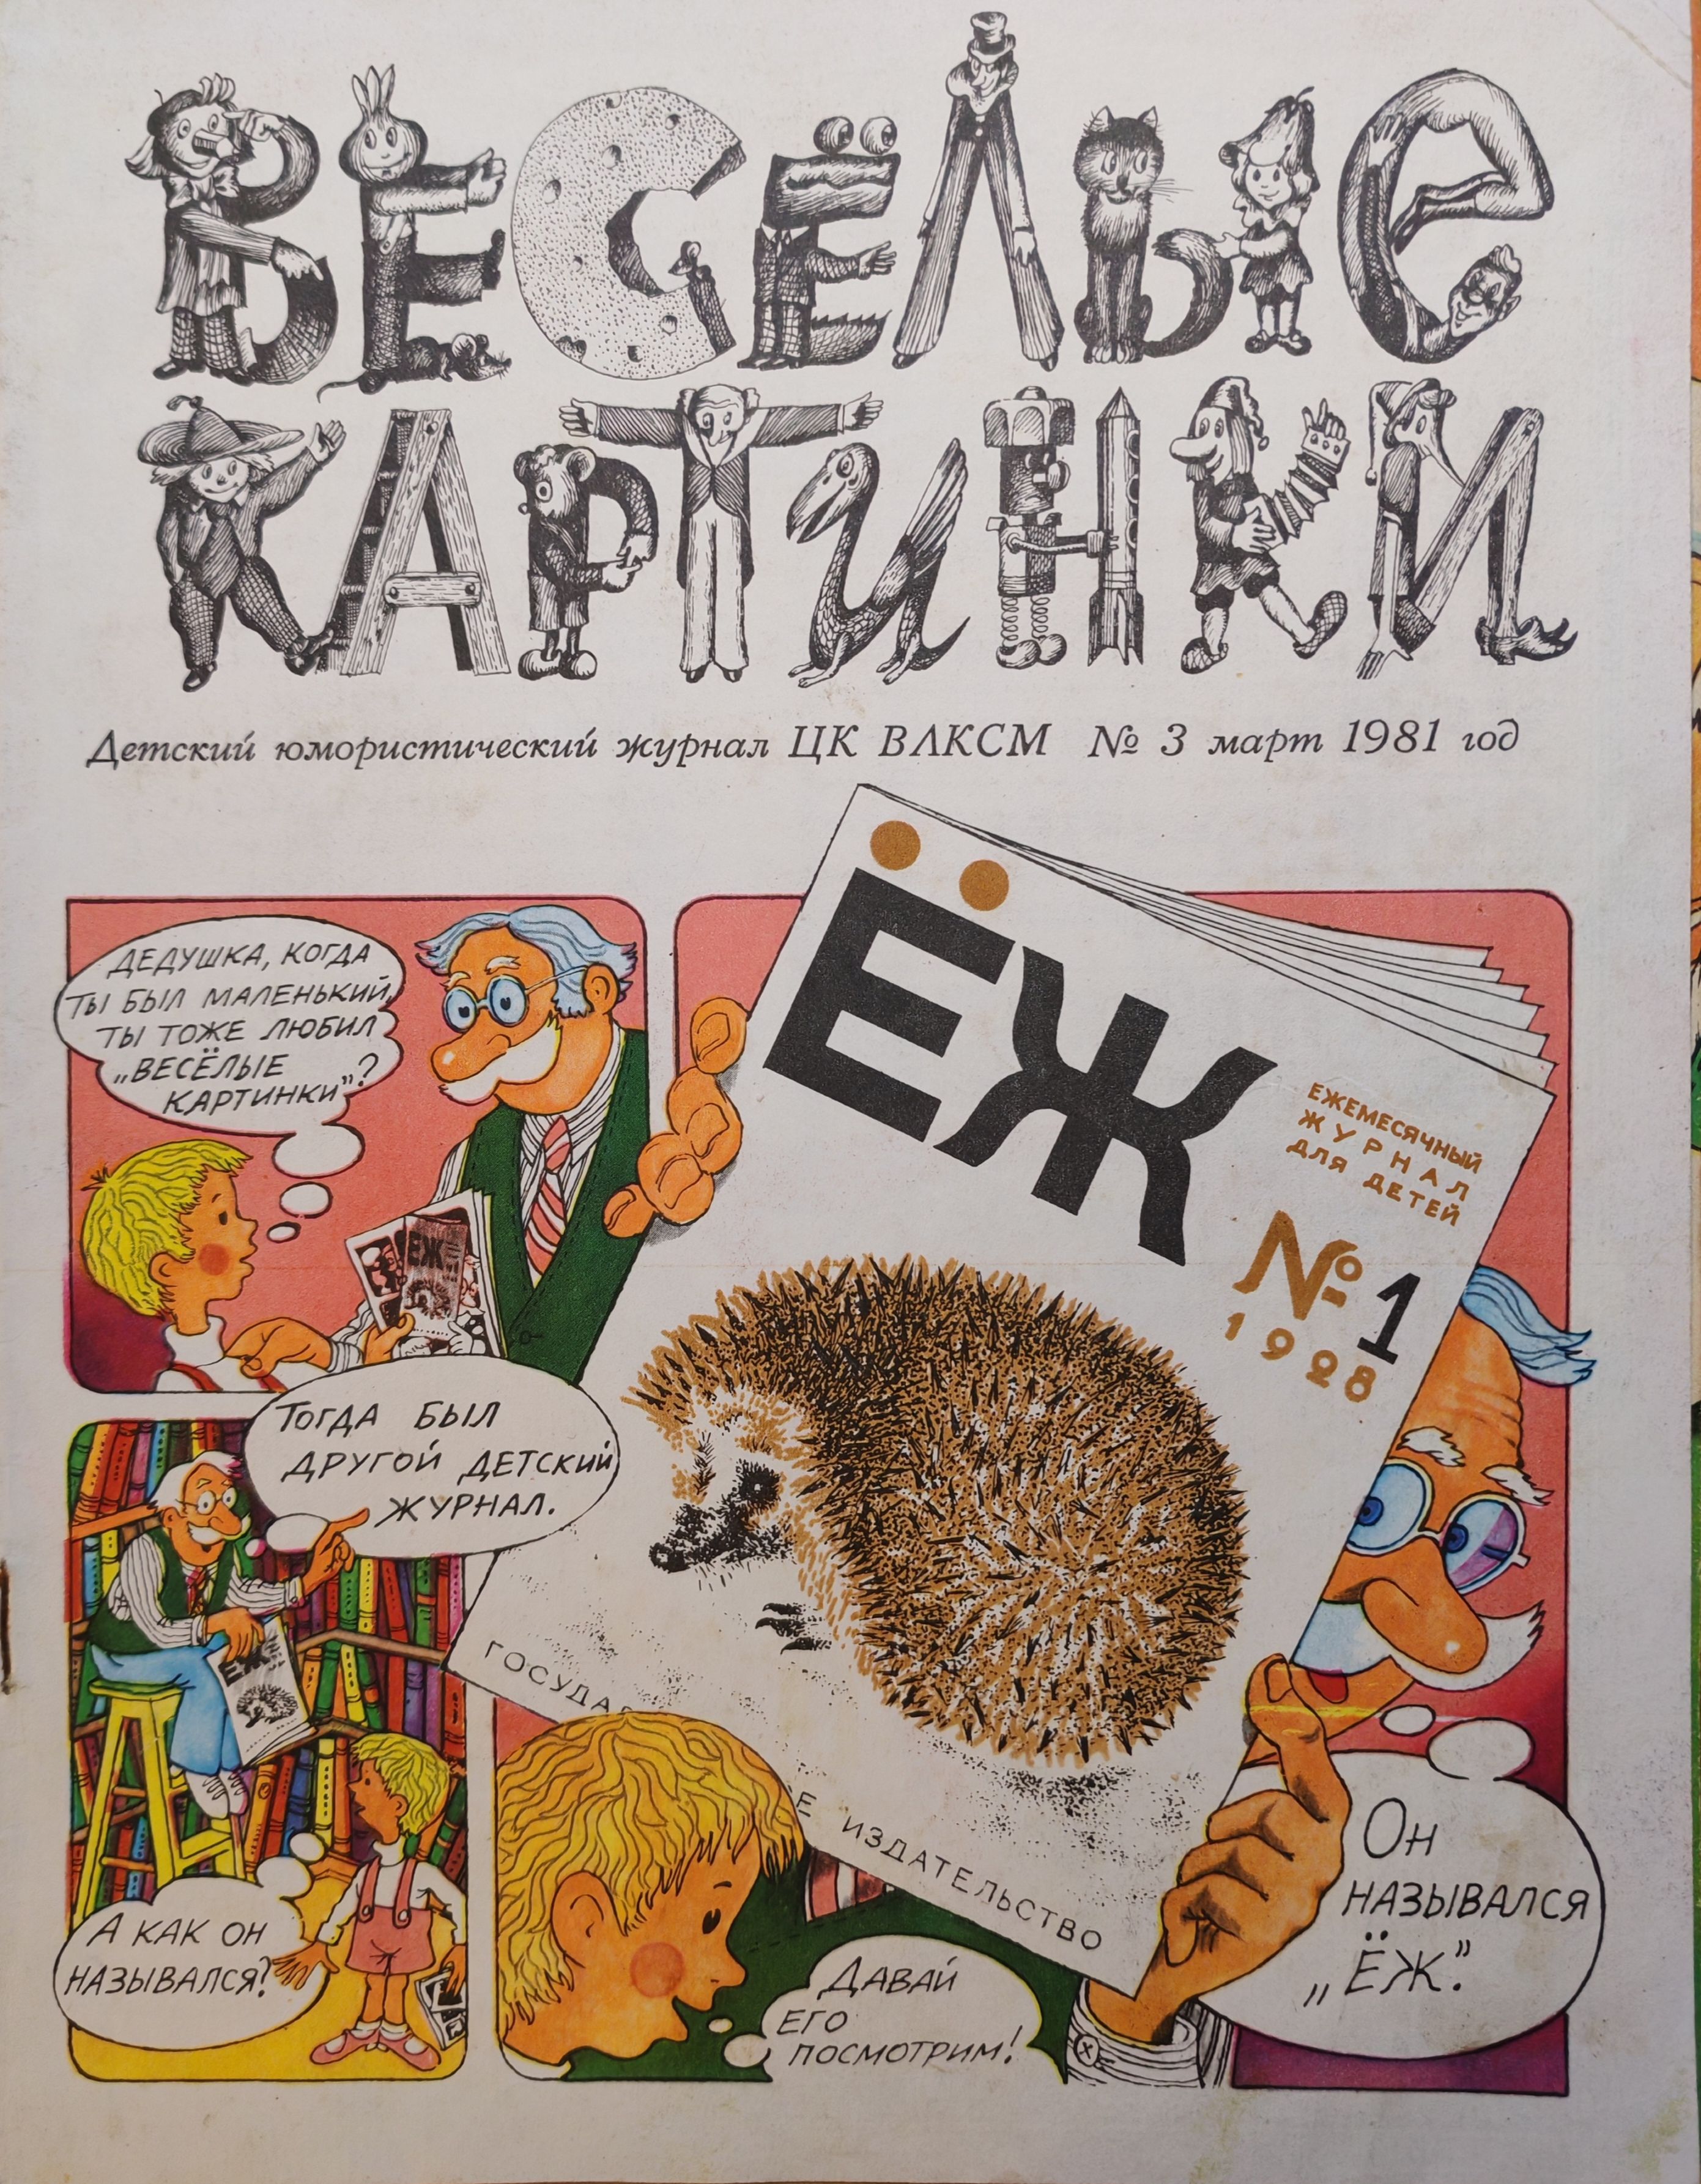 ВЕСЁЛЫЕ
КАРТИНКИ
Детский юмористический журнал ЦК ВЛКСМ № 3 март 1981 год
ДЕДУШКА, КОГДА
ТЫ БЫЛ МАЛЕНЬКИЙ,
ТЫ ТОЖЕ ЛЮБИЛ
„ВЕСЁЛЫЕ
КАРТИНКИ”?
ЁЖ
ТОГДА БЫЛ
ДРУГОЙ ДЕТСКИЙ
ЖУРНАЛ.
ЁЖ
А КАК ОН
НАЗЫВАЛСЯ?
ЁЖ
ЕЖЕМЕСЯЧНЫЙ
ЖУРНАЛ
ДЛЯ ДЕТЕЙ
№ 1
1928
ГОСУДА
Е ИЗДАТЕЛЬСТВО
ОН
НАЗЫВАЛСЯ
„ЁЖ”.
ДАВАЙ
ЕГО
ПОСМОТРИМ!